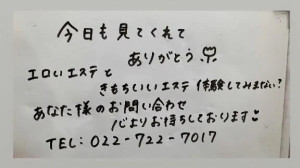 今日も見てくれて
ありがとう
エロいエステと
きもちいいエステ 体験してみまない?
あなた様のお問い合わせ
心よりお待ちしております
TEL: 022-722-7017